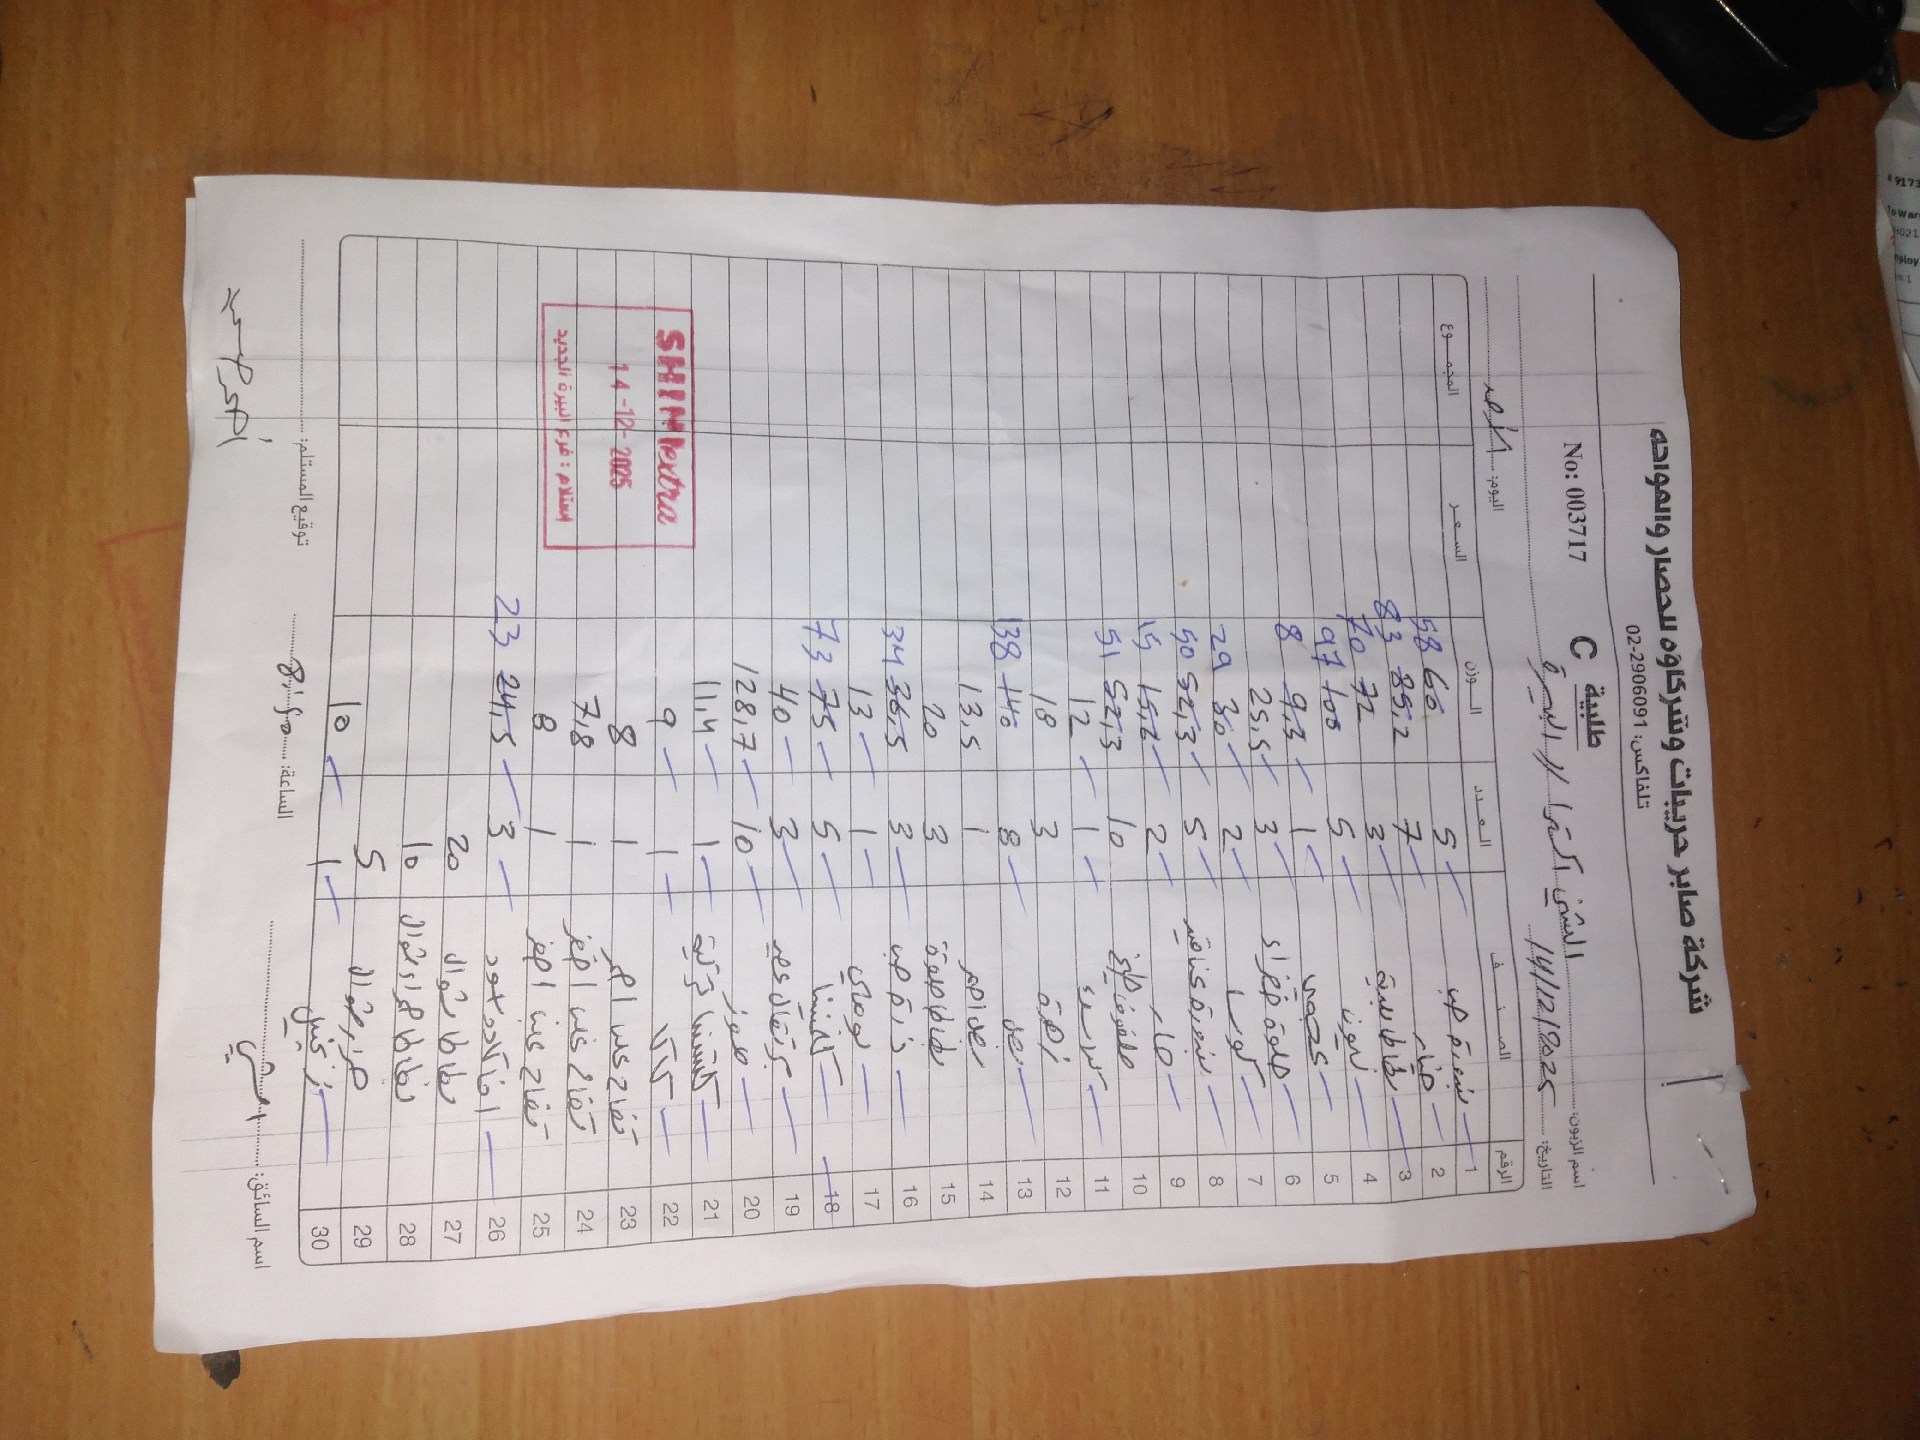 شركة صابر حريبات وشركاؤه للخضار والفواكه
تلفاكس: 02-2906091
طلبية C
No: 003717
اسم الزبون: الشني اكسترا // البيرة
التاريخ: 14/12/2025 اليوم: الأحد
الرقم الصنف العدد الوزن السعر المجموع
1 بندورة حب 5 60 58
2 خيار 7 85,2 83
3 بطاطا للبية 3 72 70
4 ليمون 5 100 97
5 1 9,3 8
6 حلوة خضراء 3 25,5
7 كوسا 2 30 29
8 بندورة عناقيد 5 52,3 50
9 2 15,2 15
10 10 52,3 51
11 1 12
12 زهرة 3 18
13 بصل 8 140 138
14 بصل احمر 1 13,5
15 بطاطا حلوة 3 20
16 ذرة حب 3 36,5 34
17 بوملي 1 13
18 كلمنتينا 5 75 73
19 برتقال عصير 3 40
20 موز 10 128,7
21 1 11,4
22 كاكا 1 9
23 تفاح احمر 1 8
24 تفاح اخضر 1 7,8
25 تفاح اصفر 1 8
26 افوكادو 3 24,5 23
27 بطاطا شوال 20
28 بطاطا شوال 10
29 جزر شوال 5
30 زنجبيل 1 10
SHINI extra
14-12-2025
استلام: فرع البيرة الجديد
اسم السائق:
الساعة:
توقيع المستلم: